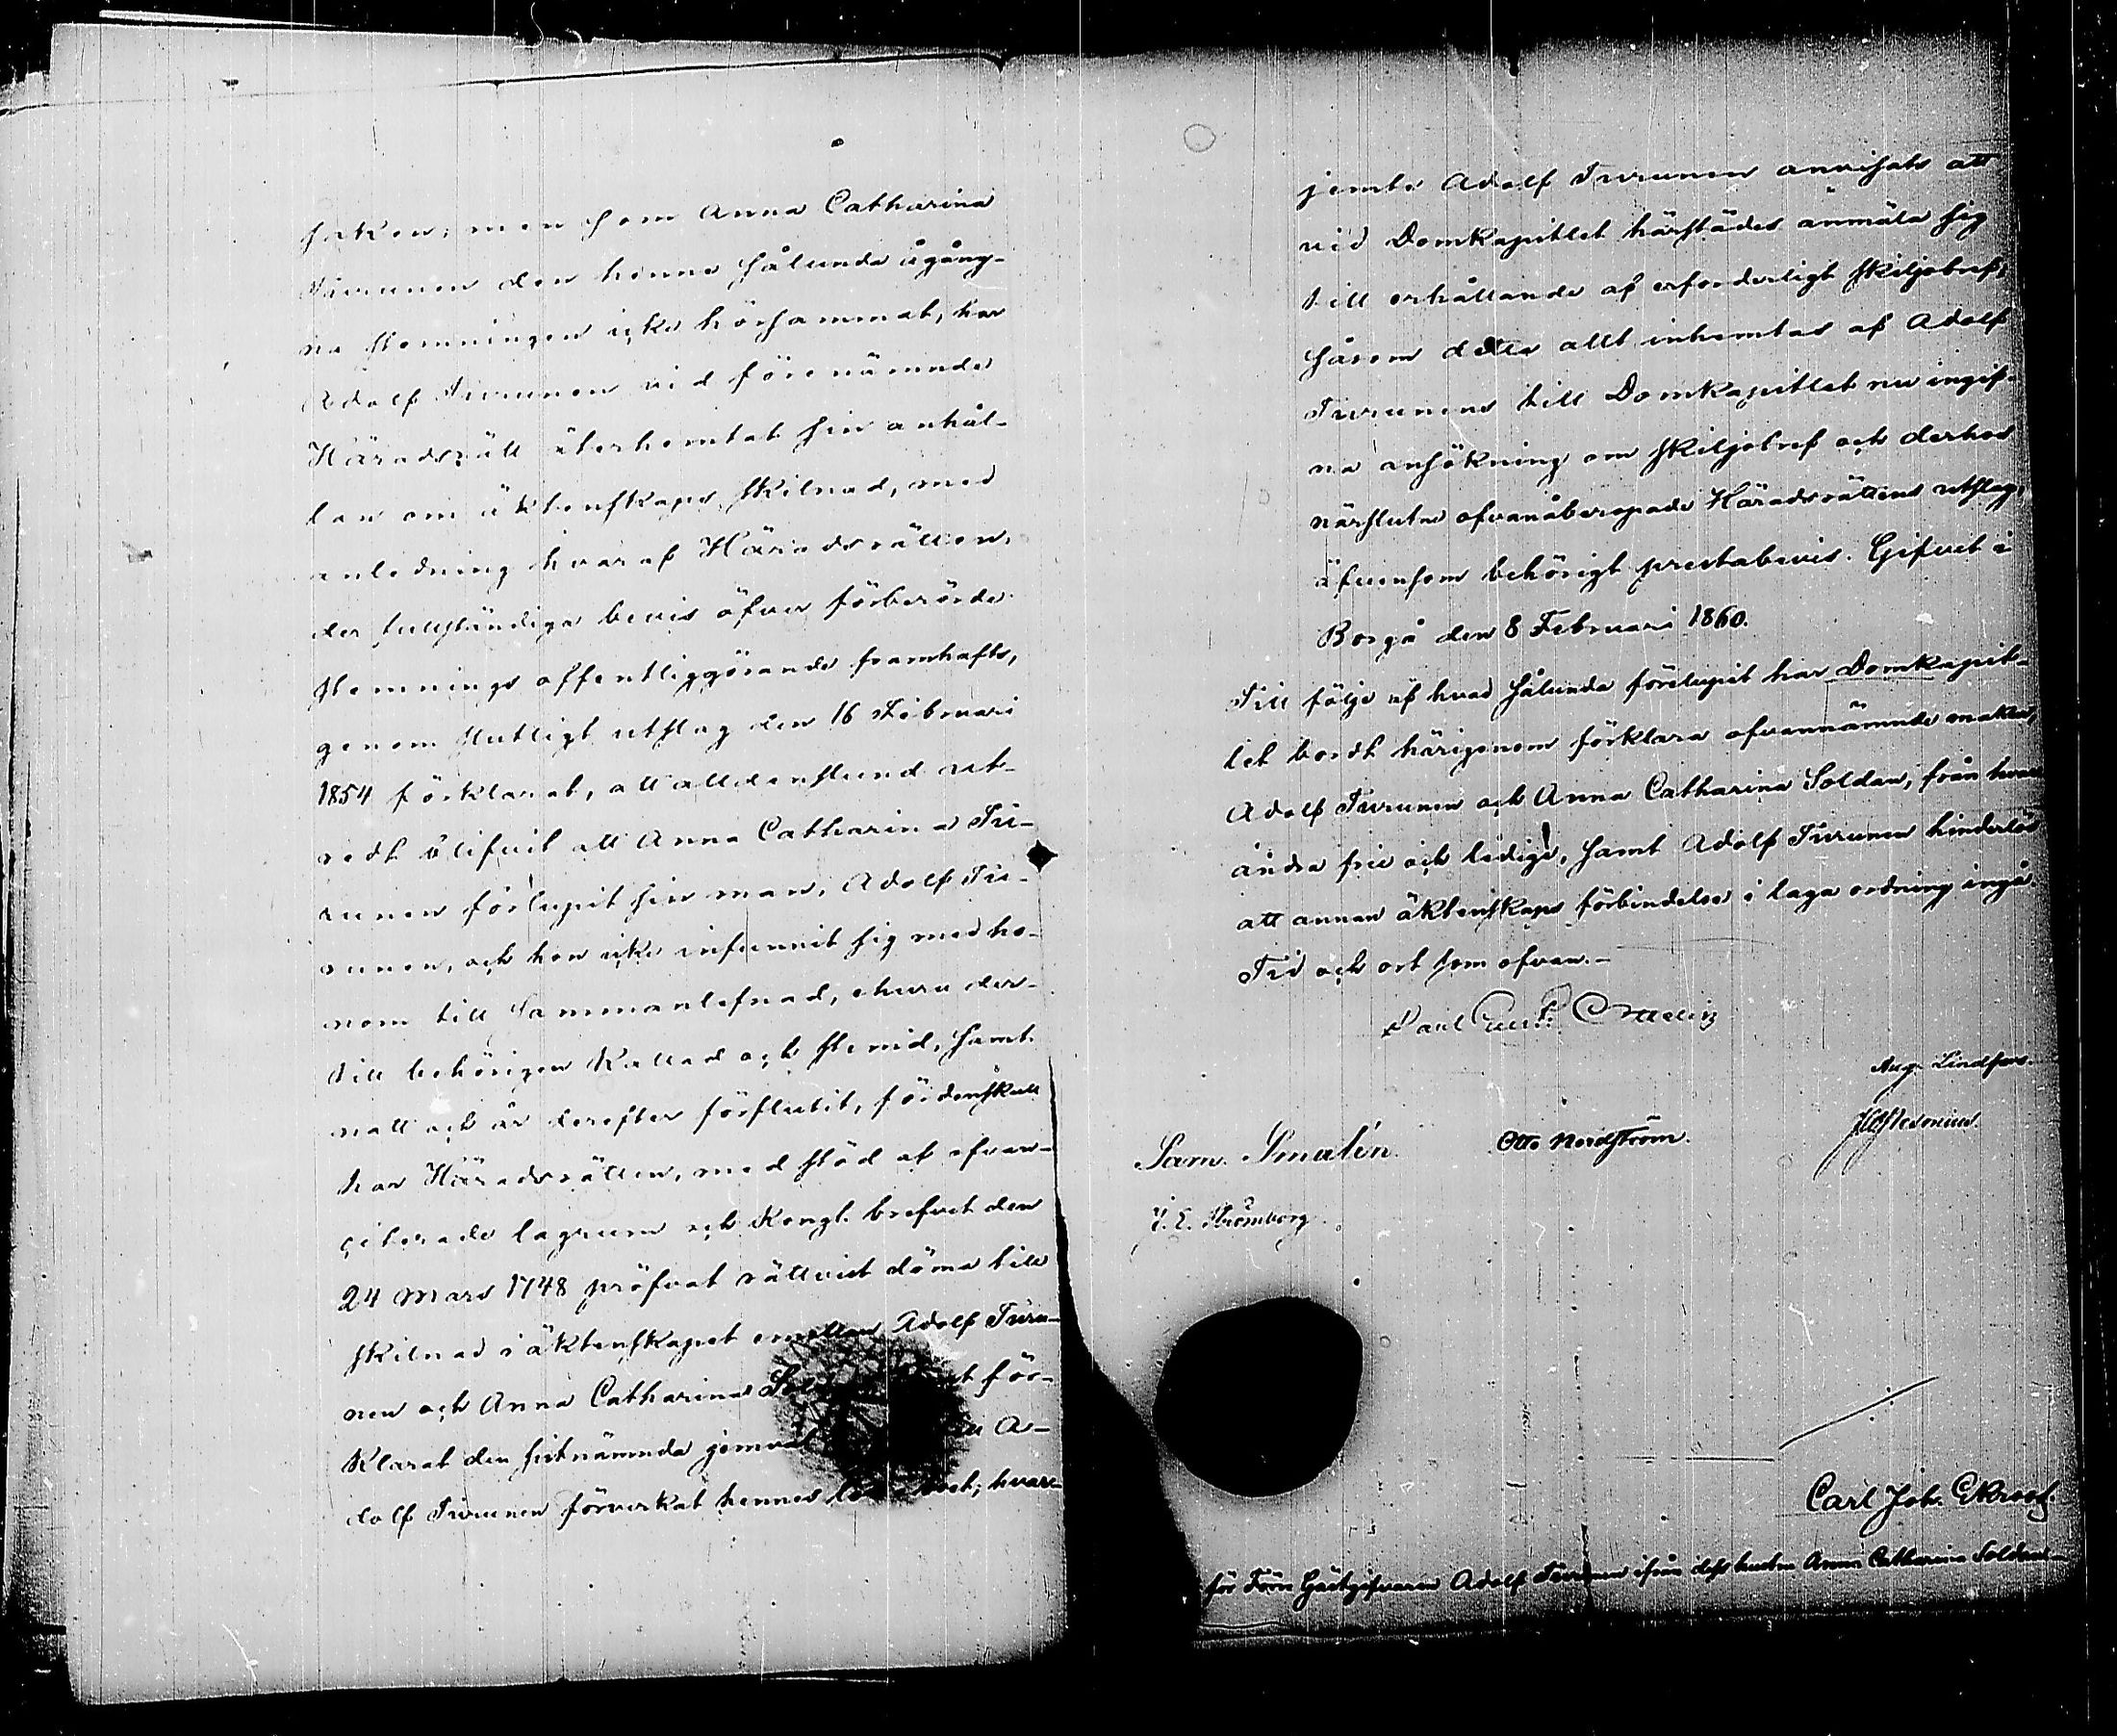 saken; men som Anna Catharina
Turunen den henne sålunda ågång-
na stemningen icke hörsammat, har
Adolf Turunen vid förenämnde
Häradsrätt återhemtat sin anhål-
lan om äktenskaps skilnad, med
anledning hvaraf Häradsrätten,
der fullständiga bevis öfver förberörde
stemnings offentliggörande framhafts,
genom slutligt utslag den 16 Februari
1854 förklarat, att alldenstund ut-
redt blifvit att Anna Catharina Tu-
runen förlupit sin man, Adolf Tu-
runen, och hon icke infunnit sig med ho-
nom till sammanlefnad, ehuru der-
till behörigen kallad och stemd, samt
natt och år derefter förflutit, fördenskull
har Häradsrätten, med stöd af ofvan-
citerade lagrum och Kongl. brefvet den
24 Mars 1748 pröfvat rättvist döma till
skilnad i äktenskapet emellan Adolf Turu-
nen och Anna Catharina för-
klarat den sistnämnda A-
dolf Turunen förverkat hennes hvar-
jemte Adolf Turunen anvisats att
vid Domkapitlet härstädes anmäla sig
till erhållande af erforderligt skiljobref;
såsom detta allt inhemtas af Adolf
Turunens till Domkapitlet nu ingif-
na ansökning om skiljobref och derhos
närslutne ofvanåberopade Häradsrättens utslag,
äfvensom behörigt prestabevis. Gifvet i
Borgå den 8 Februari 1860.
Till följe af hvad sålunda förelupit har Domkapit-
let bordt härigenom förklara ofvannämnde makar,
Adolf Turunen och Anna Catharina Soldan, från hvar-
andra frie och ledige, samt Adolf Turunen hinderlös
att annan äktenskaps förbindelse i laga ordning ingå.
Tid och ort som ofvan.-
Carl Gust. Ottelin
Aug. Lindfors.
Sam. Smalén. Otto Nordström.
J. E. Strömborg.
Carl Joh. Ekroos.
för Förre Gästgifvaren Adolf Turunen ifrån dess hustru Anna Catharina Soldan.